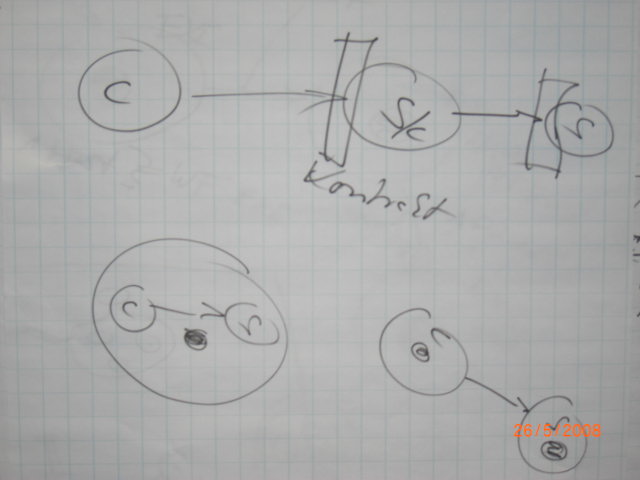 C
S/C
S
Kontrakt
C
S
C
S
26/5/2008